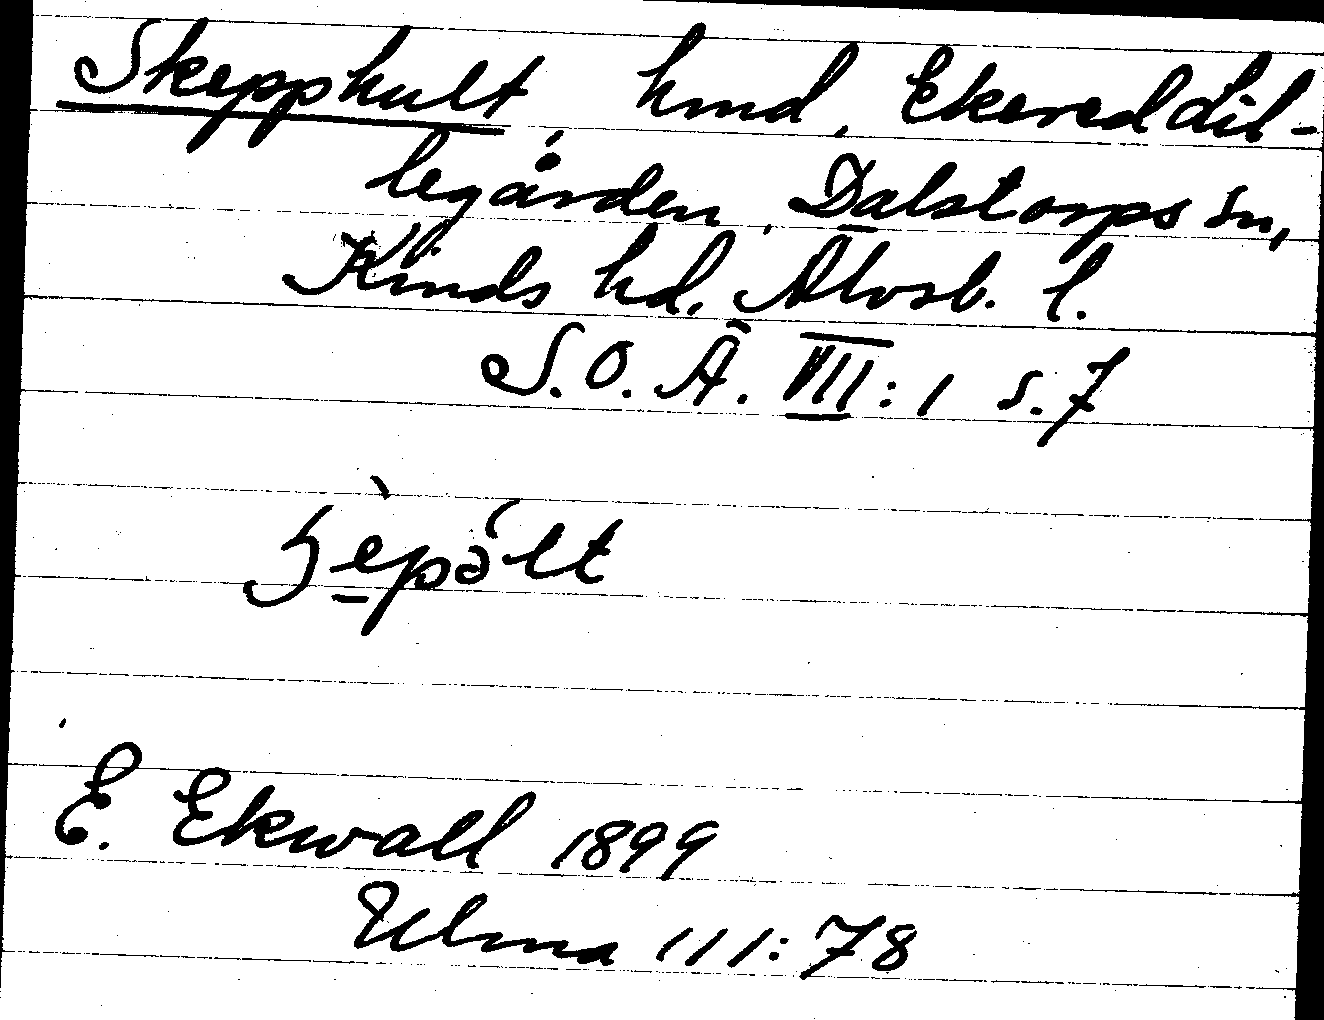 Skepphult, hmd, Ekered Lil-
legården, Dalstorps sn,
Kinds hd. Älvsb. l.
S.O.Ä. VII:1 s.7
E. Ekwall 1899
Ulma 111:78